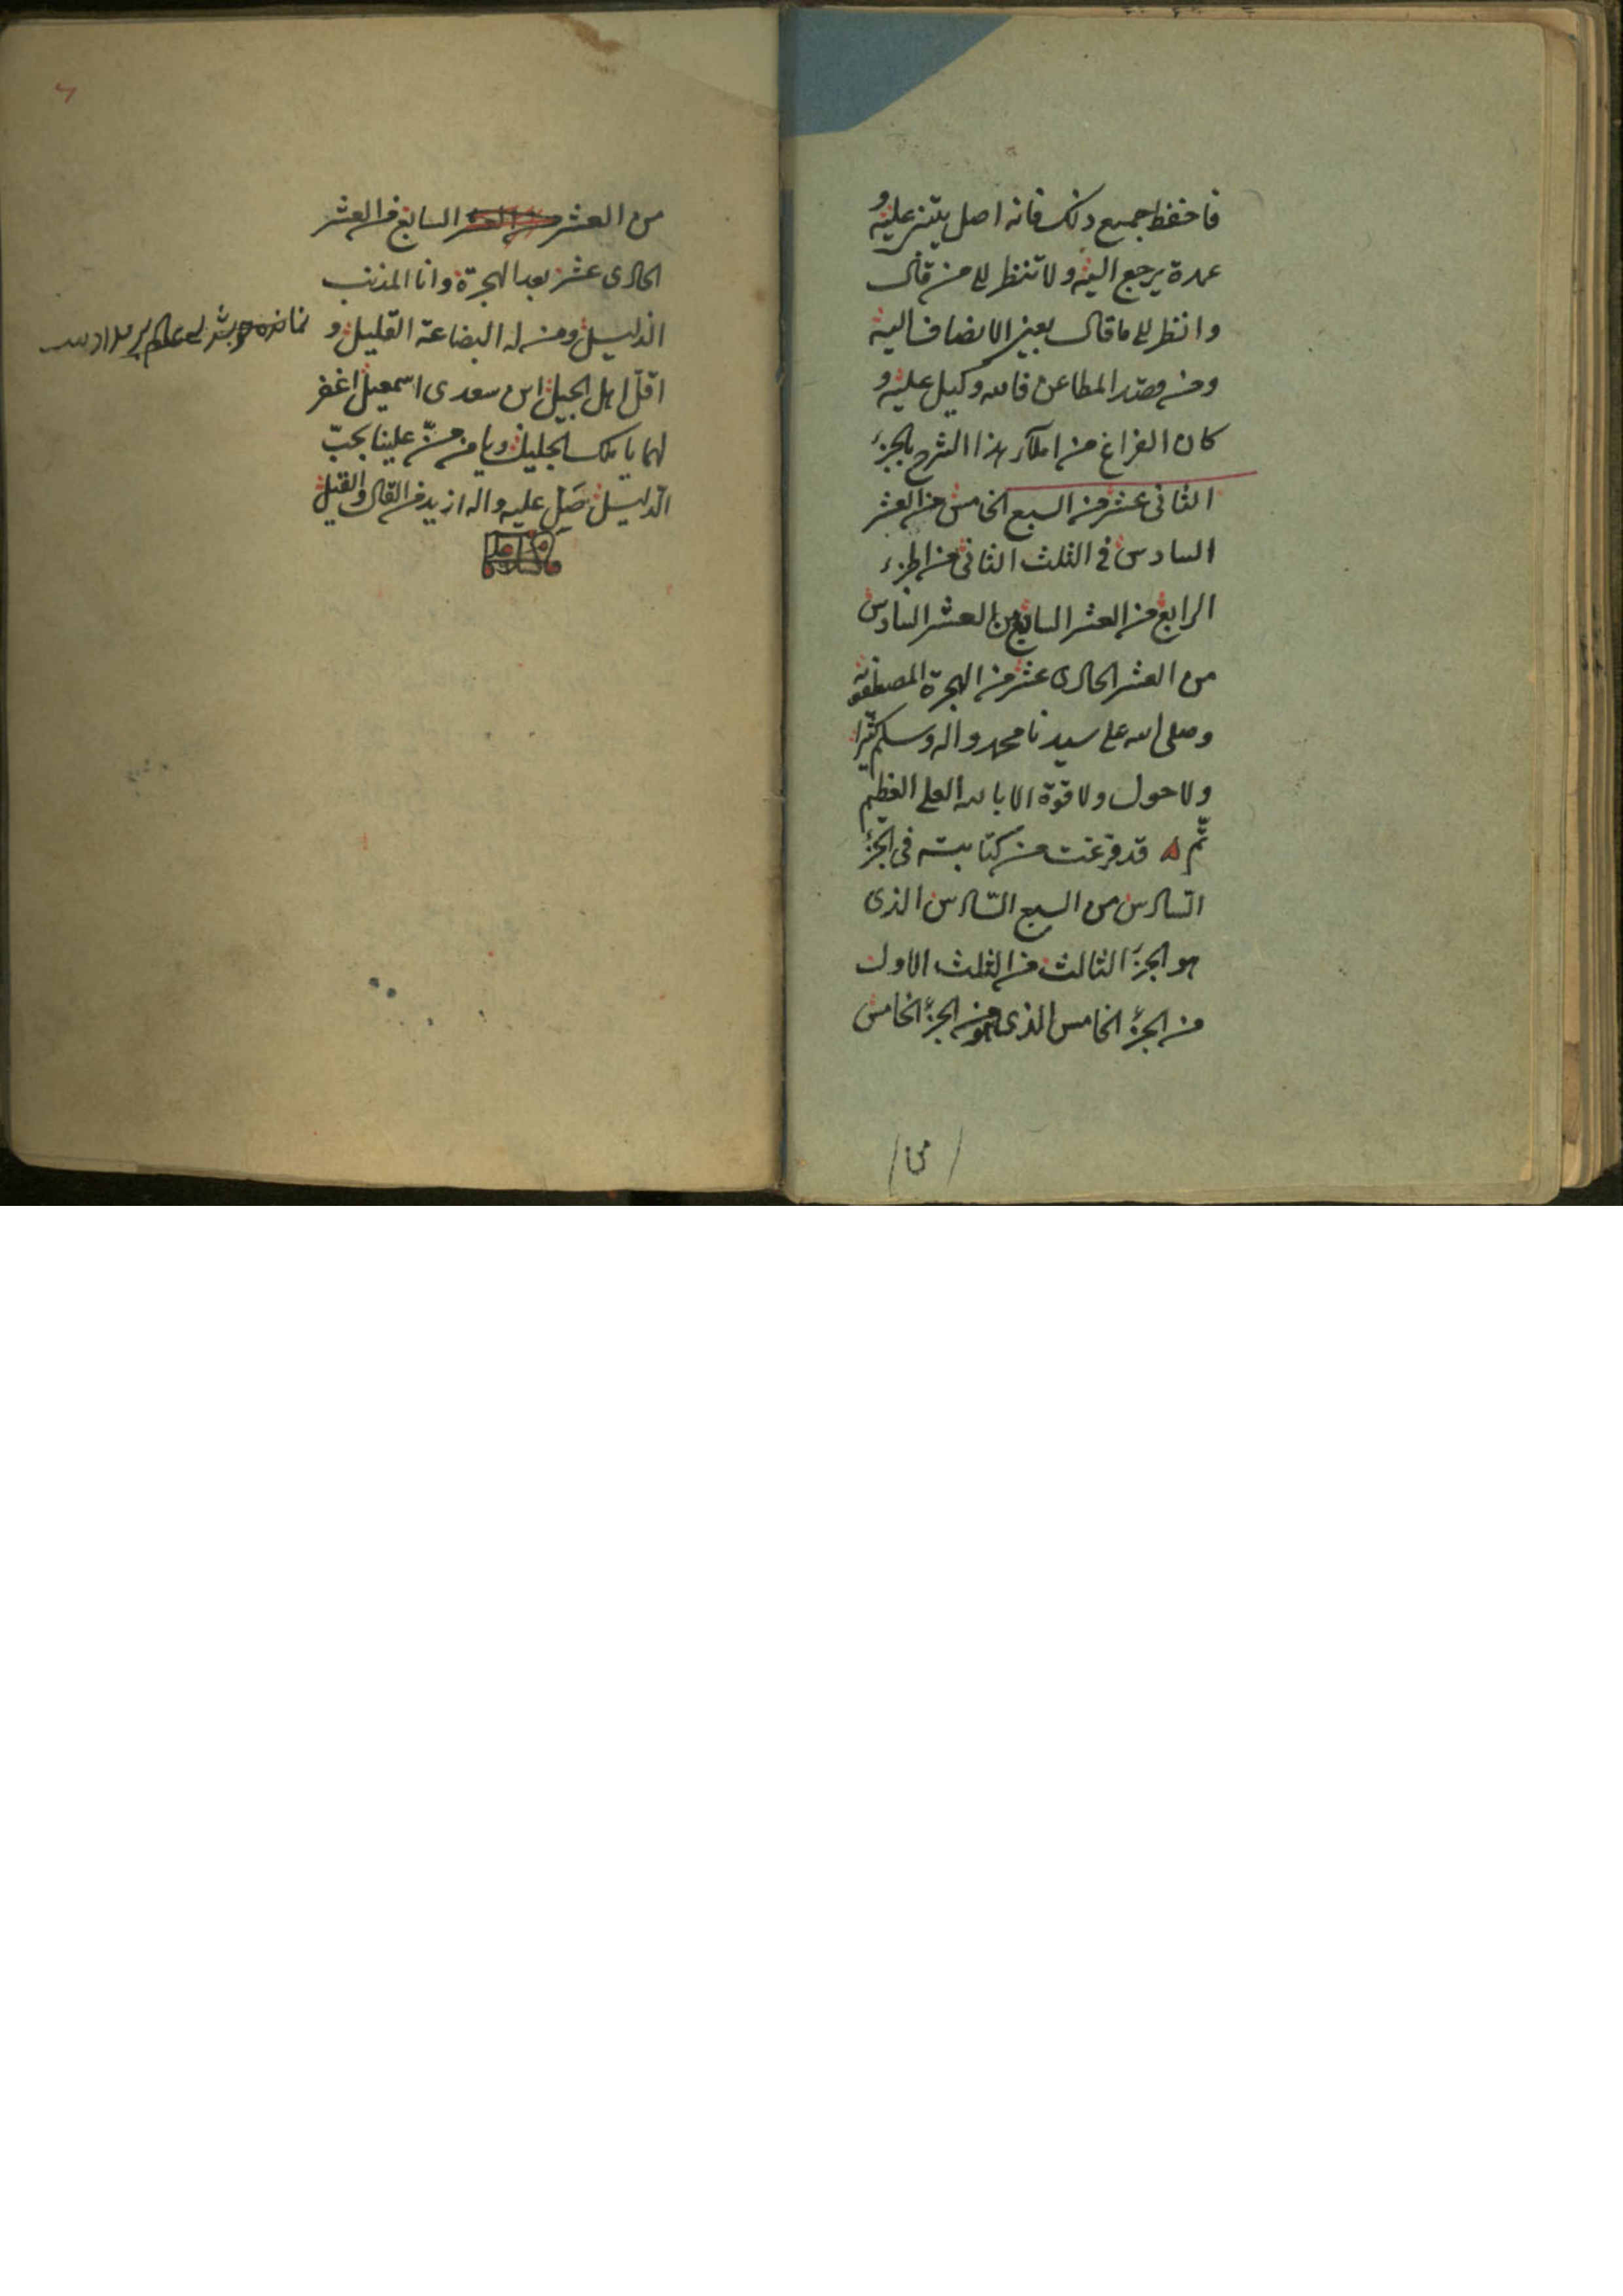 فاحفظ جميع ذلك فانه اصل يبتنى عليه و
عمدة يرجع اليه ولا تنظر الى من قال
وانظر الى ما قال بعين الانصاف اليه
ومن قصد المطاعن فالله وكيل عليه و
كان الفراغ من املاء هذا الشرح بالجزء
الثانى عشر من السبع الخامس من العشر
السادس فى الثلث الثانى من الجزء
الرابع من العشر السابع من العشر السادس
من العشر الحادى عشر من الهجرة المصطفويه
وصلى الله على سيدنا محمد واله وسلم كثيرا
ولا حول ولا قوة الا بالله العلى العظيم
تم قد فرغت من كتابته فى الجزء
السادس من السبع السادس الذى
هو الجزء الثالث من الثلث الاول
من الجزء الخامس الذى هو من الجزء الخامس
من
من العشر السابع من العشر
الحادى عشر بعد الهجرة وانا المذنب
الذليل ومن له البضاعة القليل و
اقل اهل الجيل ابن سعدى اسمعيل اغفر
لهما يا ملك الجليل ويا من منّ علينا بحبّ
الدليل صلّ عليه واله ازيد من القال والقيل